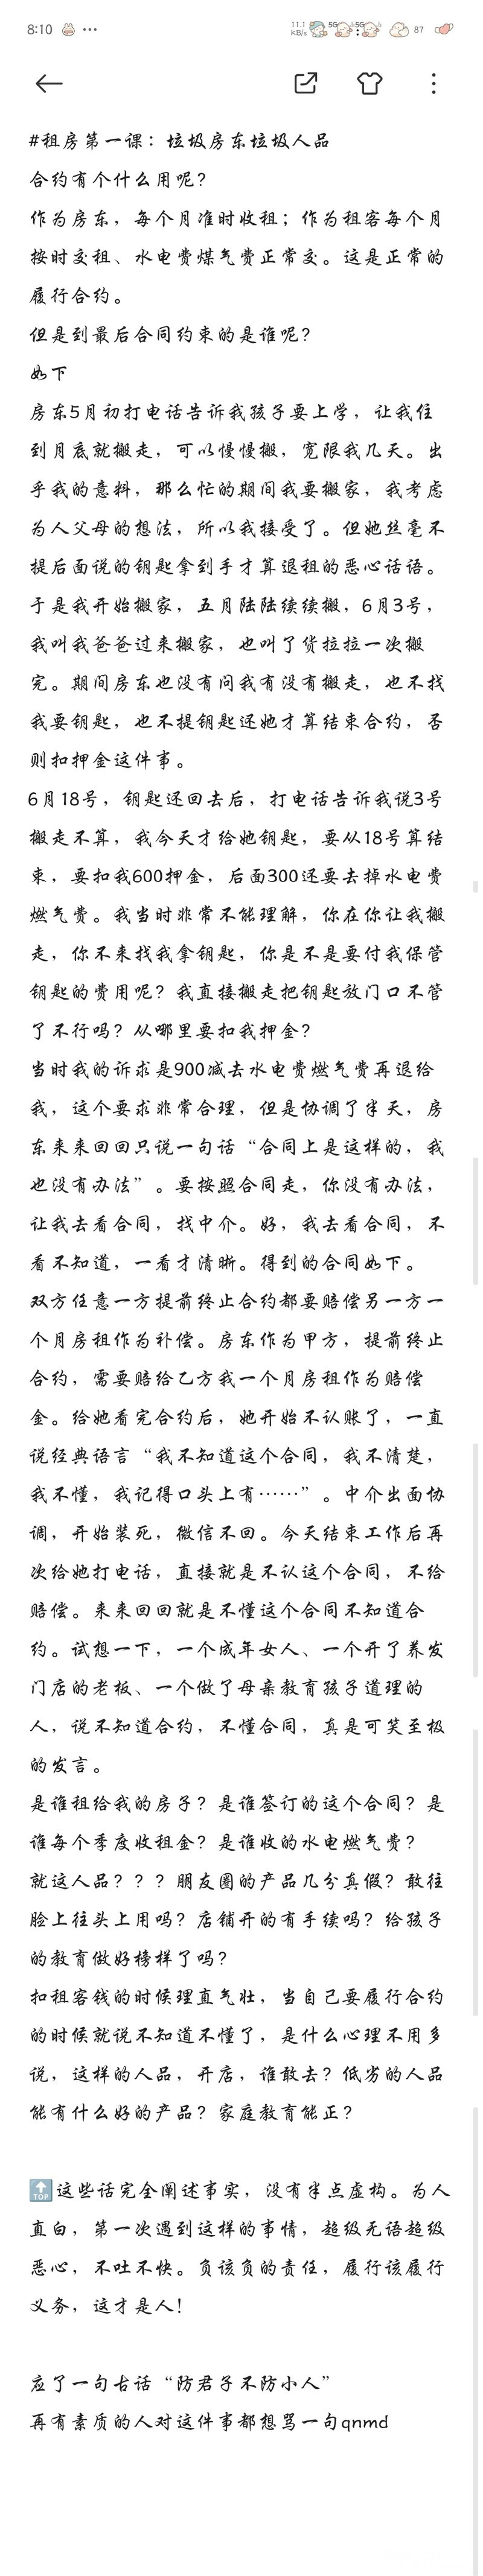 8:10
11.1
KB/s
5G
5G
87
#租房第一课：垃圾房东垃圾人品
合约有个什么用呢？
作为房东，每个月准时收租；作为租客每个月
按时交租、水电费煤气费正常交。这是正常的
履行合约。
但是到最后合同约束的是谁呢？
如下
房东5月初打电话告诉我孩子要上学，让我住
到月底就搬走，可以慢慢搬，宽限我几天。出
乎我的意料，那么忙的期间我要搬家，我考虑
为人父母的想法，所以我接受了。但她丝毫不
提后面说的钥匙拿到手才算退租的恶心话语。
于是我开始搬家，五月陆陆续续搬，6月3号，
我叫我爸爸过来搬家，也叫了货拉拉一次搬
完。期间房东也没有问我有没有搬走，也不找
我要钥匙，也不提钥匙还她才算结束合约，否
则扣押金这件事。
6月18号，钥匙还回去后，打电话告诉我说3号
搬走不算，我今天才给她钥匙，要从18号算结
束，要扣我600押金，后面300还要去掉水电费
燃气费。我当时非常不能理解，你在你让我搬
走，你不来找我拿钥匙，你是不是要付我保管
钥匙的费用呢？我直接搬走把钥匙放门口不管
了不行吗？从哪里要扣我押金？
当时我的诉求是900减去水电费燃气费再退给
我，这个要求非常合理，但是协调了半天，房
东来来回回只说一句话“合同上是这样的，我
也没有办法”。要按照合同走，你没有办法，
让我去看合同，找中介。好，我去看合同，不
看不知道，一看才清晰。得到的合同如下。
双方任意一方提前终止合约都要赔偿另一方一
个月房租作为补偿。房东作为甲方，提前终止
合约，需要赔给乙方我一个月房租作为赔偿
金。给她看完合约后，她开始不认账了，一直
说经典语言“我不知道这个合同，我不清楚，
我不懂，我记得口头上有……”。中介出面协
调，开始装死，微信不回。今天结束工作后再
次给她打电话，直接就是不认这个合同，不给
赔偿。来来回回就是不懂这个合同不知道合
约。试想一下，一个成年女人、一个开了养发
门店的老板、一个做了母亲教育孩子道理的
人，说不知道合约，不懂合同，真是可笑至极
的发言。
是谁租给我的房子？是谁签订的这个合同？是
谁每个季度收租金？是谁收的水电燃气费？
就这人品？？？朋友圈的产品几分真假？敢往
脸上往头上用吗？店铺开的有手续吗？给孩子
的教育做好榜样了吗？
扣租客钱的时候理直气壮，当自己要履行合约
的时候就说不知道不懂了，是什么心理不用多
说，这样的人品，开店，谁敢去？低劣的人品
能有什么好的产品？家庭教育能正？
TOP这些话完全阐述事实，没有半点虚构。为人
直白，第一次遇到这样的事情，超级无语超级
恶心，不吐不快。负该负的责任，履行该履行
义务，这才是人！
应了一句古话“防君子不防小人”
再有素质的人对这件事都想骂一句qnmd